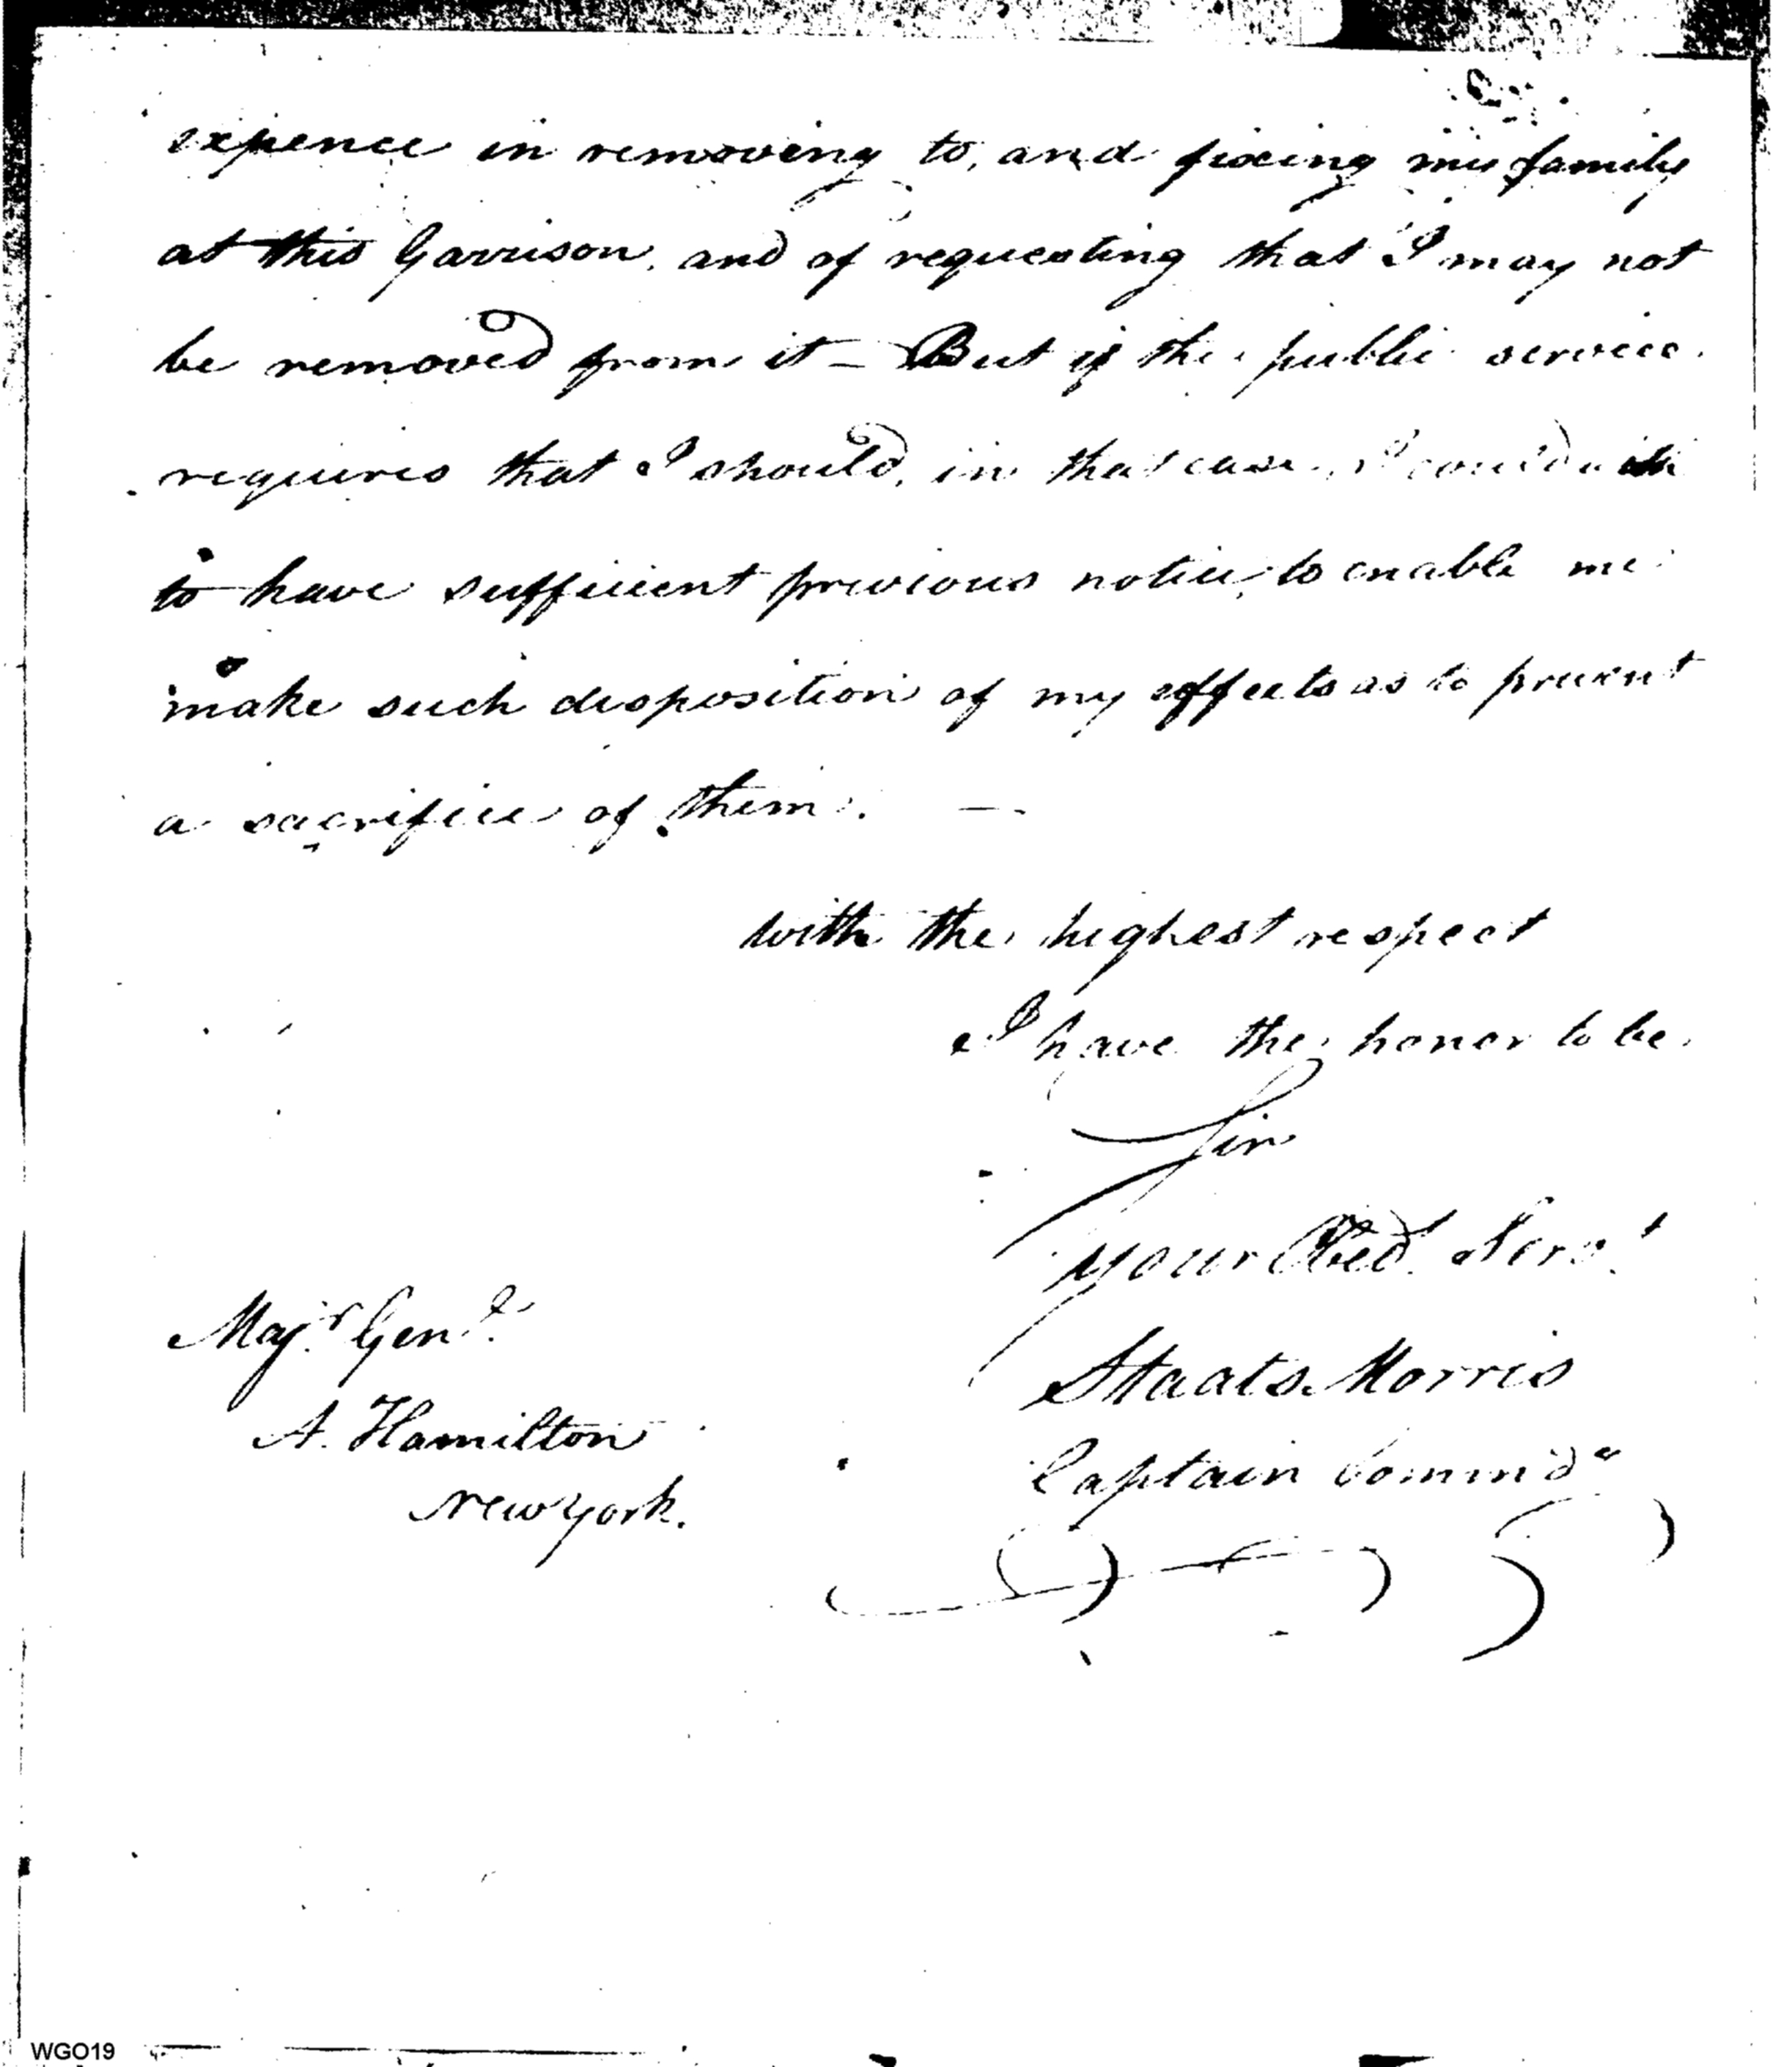 expence in removing to, and fixing my family
at this Garrison, and of requesting that I may not
be removed from it — But if the public service
requires that I should, in that case, I could wish
to have sufficient previous notice, to enable me
make such disposition of my effects as to prevent
a sacrifice of them. —
with the highest respect
I have the honor to be
Sir
your Obed. Servt
Majr. Genl.
Staats Morris
A. Hamilton
Captain Commd
New York.
WGO19